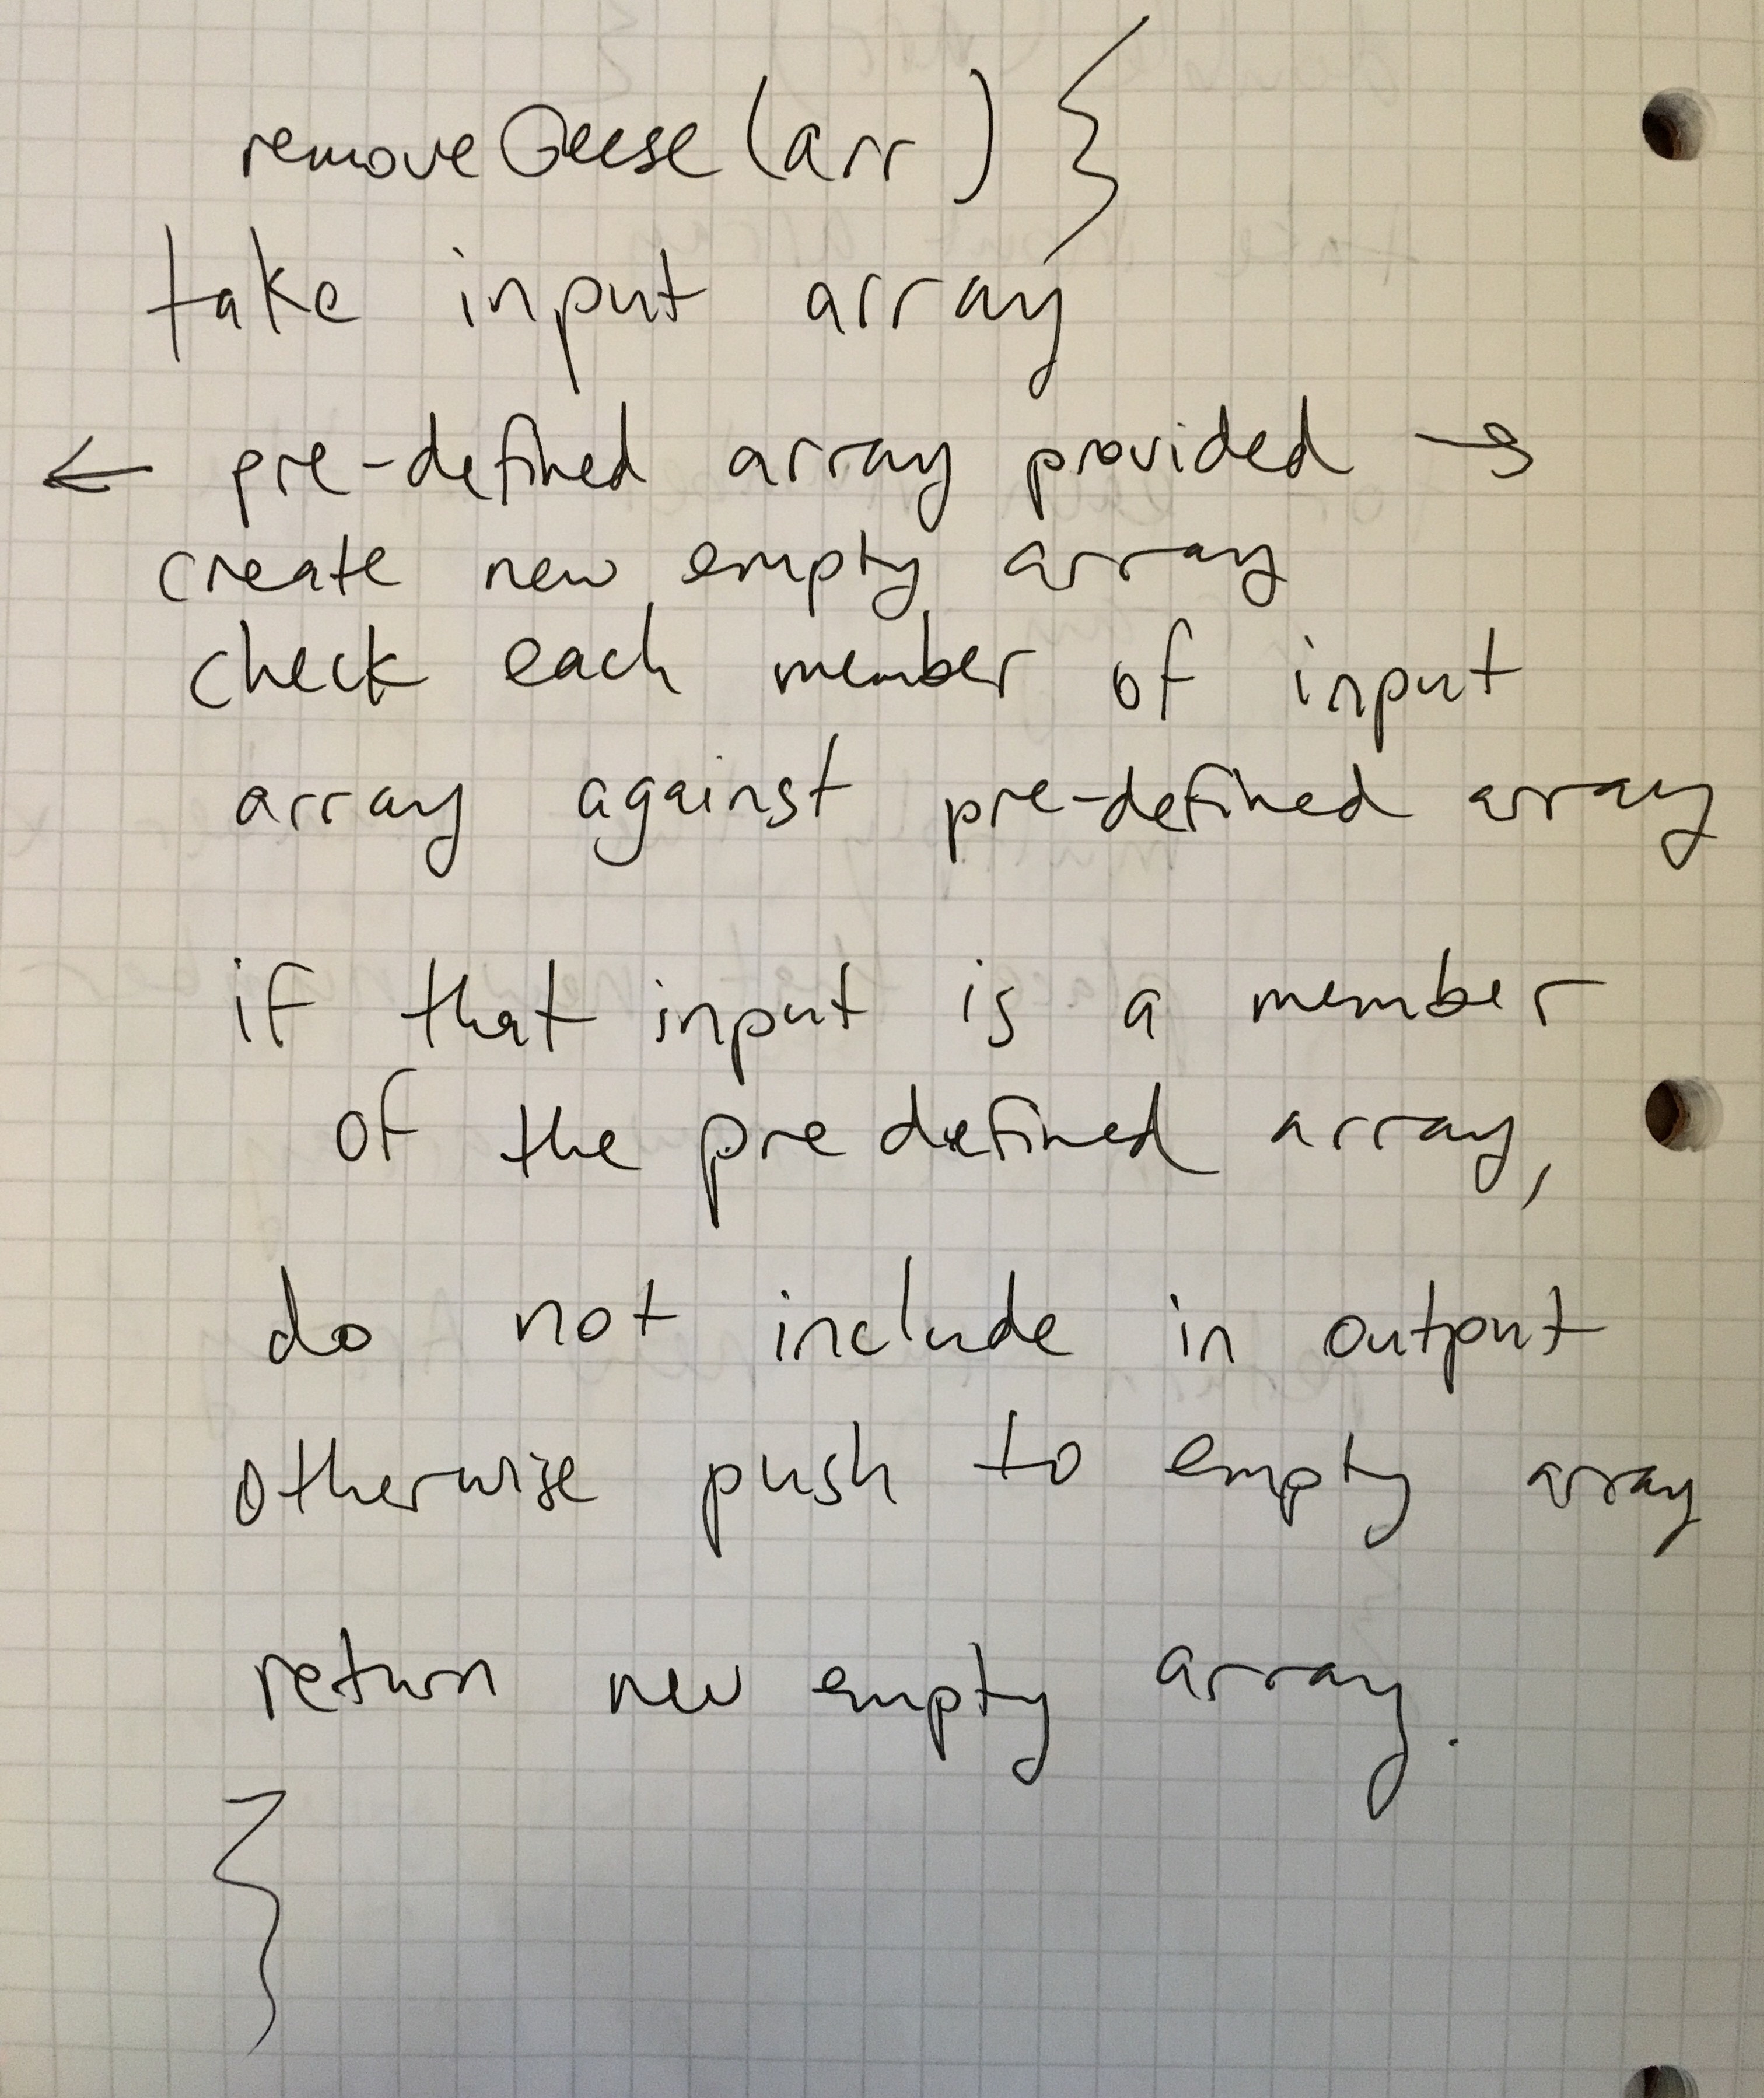 removeGeese (arr) {
take input array
← pre-defined array provided →
create new empty array
check each member of input
array against pre-defined array
if that input is a member
of the pre defined array,
do not include in output
otherwise push to empty array
return new empty array.
}